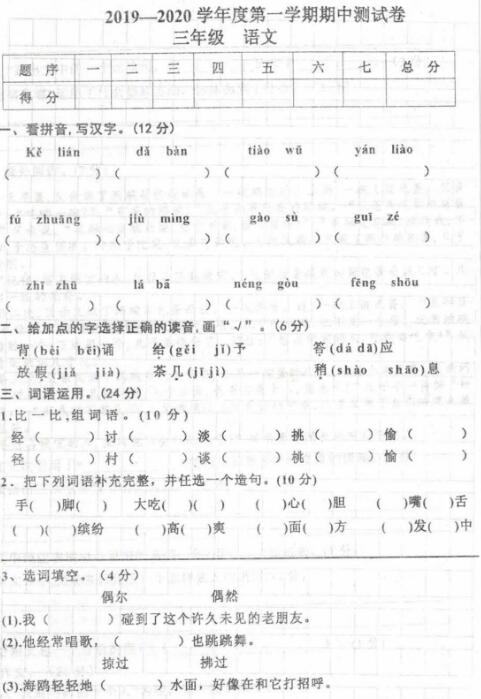 2019—2020学年度第一学期期中测试卷
三年级 语文
题 序 一 二 三 四 五 六 七 总 分
得 分
一、看拼音,写汉字。(12分)
Kě lián dǎ bàn tiào wǔ yán liào
( )( )( )( )
fú zhuāng jiù mìng gào sù guī zé
( )( )( )( )
zhī zhū lǎ bā néng gòu fēng shōu
( )( )( )( )
二、给加点的字选择正确的读音,画“√”。(6分)
背(bèi bēi)诵 给(gěi jǐ)予 答(dá dā)应
放假(jiǎ jià) 茶几(jī jì) 稍(shào shāo)息
三、词语运用。(24分)
1.比一比,组词语。(10分)
经( )讨( )淡( )挑( )偷( )
径( )村( )谈( )桃( )愉( )
2、把下列词语补充完整,并任选一个造句。(10分)
手( )脚( ) 大吃( )( ) ( )心( )胆 ( )嘴( )舌
( )( )缤纷 ( )高( )爽 ( )面( )方 ( )发( )中
3、选词填空。(4分)
偶尔 偶然
(1).我( )碰到了这个许久未见的老朋友。
(2).他经常唱歌,( )也跳跳舞。
掠过 拂过
(3).海鸥轻轻地( )水面,好像在和它打招呼。